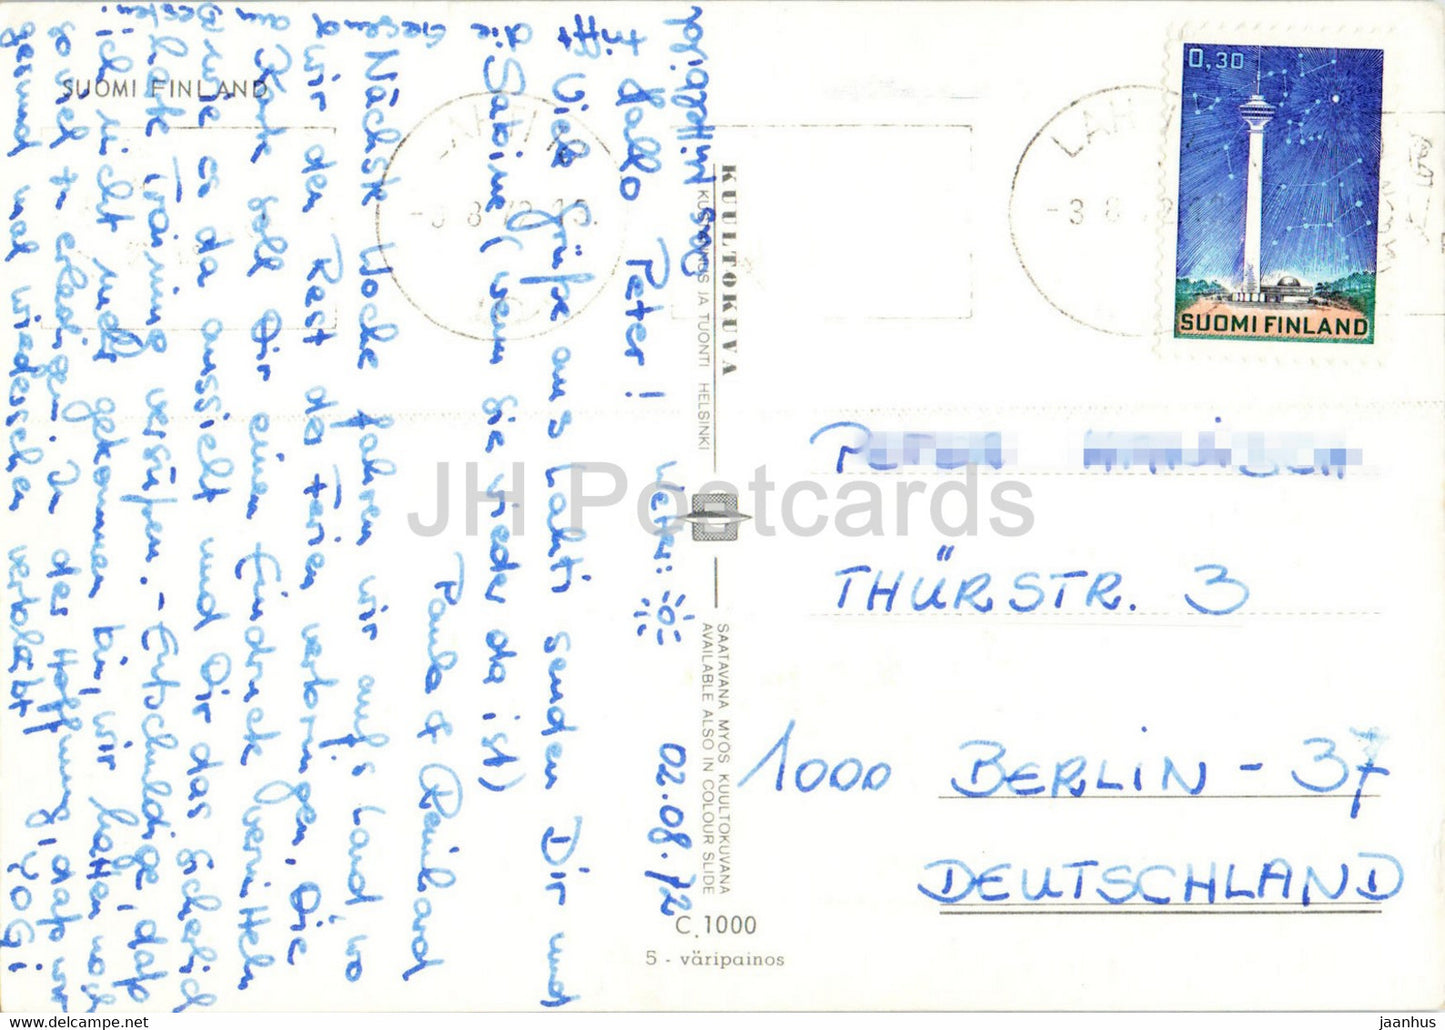 SUOMI FINLAND
LAHTI
-3.8.72
LAH
-3.8.7
0,30
SUOMI FINLAND
KUULTOKUVA
KUSTANNUS JA TUONTI HELSINKI
SAATAVANA MYÖS KUULTOKUVANA
AVAILABLE ALSO IN COLOUR SLIDE
C. 1000
5 - väripainos
Wetter: 02.08.72
Hallo Peter!
Viele Grüße aus Lahti senden Dir und
Sabine (wenn sie wieder da ist)
Paula + Reinhard
Nächste Woche fahren wir aufs Land, wo
wir den Rest der Ferien verbringen. Die
Karte soll Dir einen Eindruck vermitteln
wie es da aussieht und Dir das
Training versüßen. - Entschuldige, daß
ich nicht mehr gekommen bin, wir hatten noch
soviel zu erledigen. In der Hoffnung, daß wir
gesund mal wiedersehen verbleibt YOGI
PETER
THÜRSTR. 3
1000 BERLIN - 37
DEUTSCHLAND
JH Postcards
delcampe.net
jaanhus